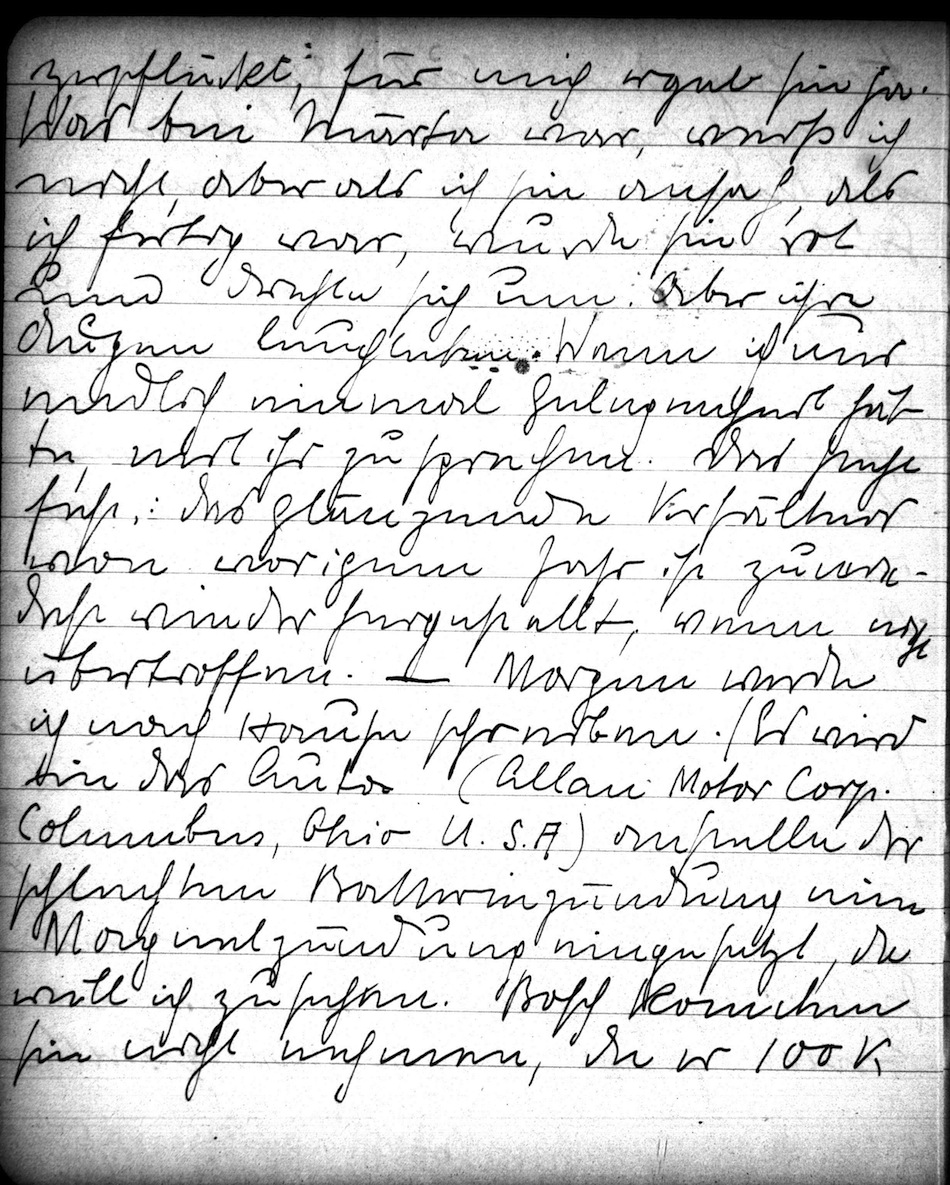 zerpflückt; für mich ergab sie ja.
Was bei Märta war, weiß ich
nicht, aber als ich sie ansah, als
ich fertig war, wurde sie rot
und drehte sich um. Aber ihre
Augen leuchteten. Wenn ich nur
endlich einmal Gelegenheit hät-
te, mit ihr zu sprechen. Das steht
fest: das glänzende Verhältnis
von vorigem Jahr ist zumin-
dest wieder hergestellt, wenn nicht
übertroffen. — Morgen werde
ich nach Hause schreiben. Es wird
in das Auto (Allan Motor Corp.
Columbus, Ohio U.S.A) anstelle der
schlechten Batteriezündung eine
Magnetzündung eingesetzt, da
will ich zusehen. Bosch konnten
sie nicht nehmen, da er 100 K